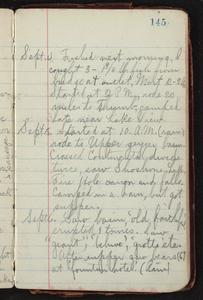 145
Sept 4. Fished next morning, I
caught 3 - 1½ lb fish from
at outlet,
Started at 2 P.M., rode 20
miles to Thumb, camped
late near Lake View.
Sept 5. Started at 10 A.M. (rain)
rode to Upper geyser basin.
Crossed Continental divide
twice, saw Shoshone lake,
Fire hole canon and falls.
Camped in a barn, but got
supper.
Sept 6. Saw basin, old faithful
erupted times. Saw
"giant", "hive", grotto etc.
After supper saw bears (6)
at Fountain hotel. (rain)